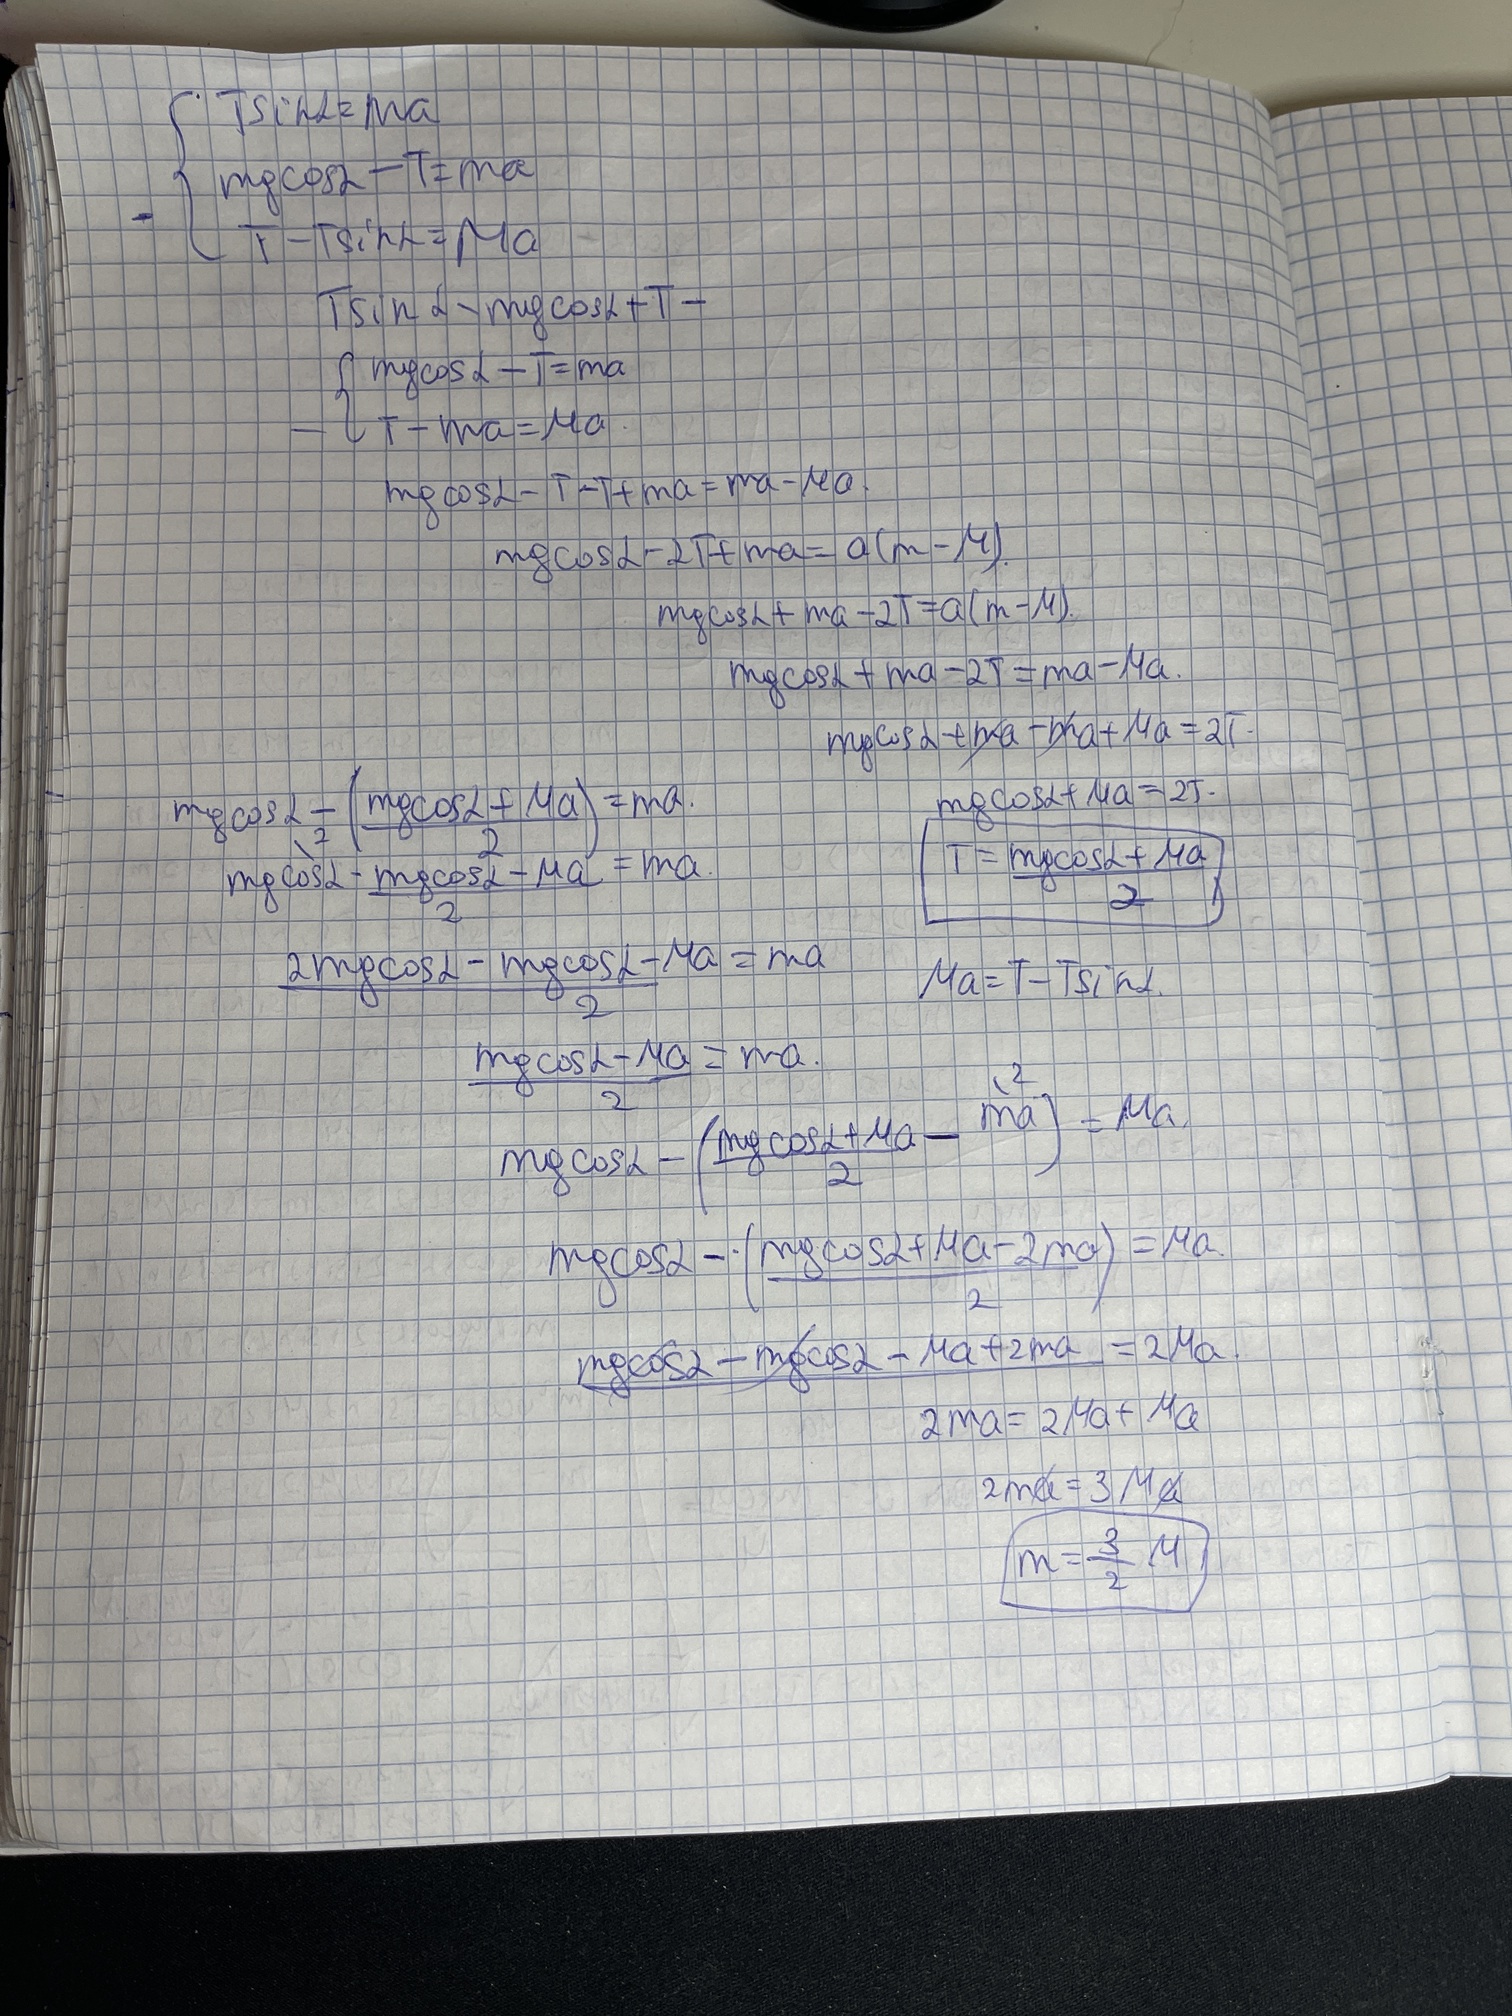 Tsinα = ma
mgcosα - T = ma
T - Tsinα = Ma
Tsinα - mgcosα + T -
mgcosα - T = ma
T - ma = Ma.
mgcosα - T - T + ma = ma - Ma.
mgcosα - 2T + ma = a(m - M).
mgcosα + ma - 2T = a(m - M).
mgcosα + ma - 2T = ma - Ma.
mgcosα + ma - ma + Ma = 2T.
mgcosα + Ma = 2T.
T = (mgcosα + Ma)/2
mgcosα - ((mgcosα + Ma)/2) = ma.
mgcosα\2 - (mgcosα - Ma)/2 = ma.
(2mgcosα - mgcosα - Ma)/2 = ma
Ma = T - Tsinα.
(mgcosα - Ma)/2 = ma.
mgcosα - ((mgcosα + Ma)/2 - ma\2) = Ma.
mgcosα - ((mgcosα + Ma - 2ma)/2) = Ma.
mgcosα - mgcosα - Ma + 2ma = 2Ma.
2ma = 2Ma + Ma
2ma = 3Ma
m = 3/2 M